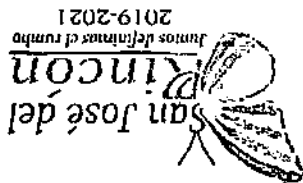 an José del
Rincón
Juntos definimos el rumbo
2019-2021